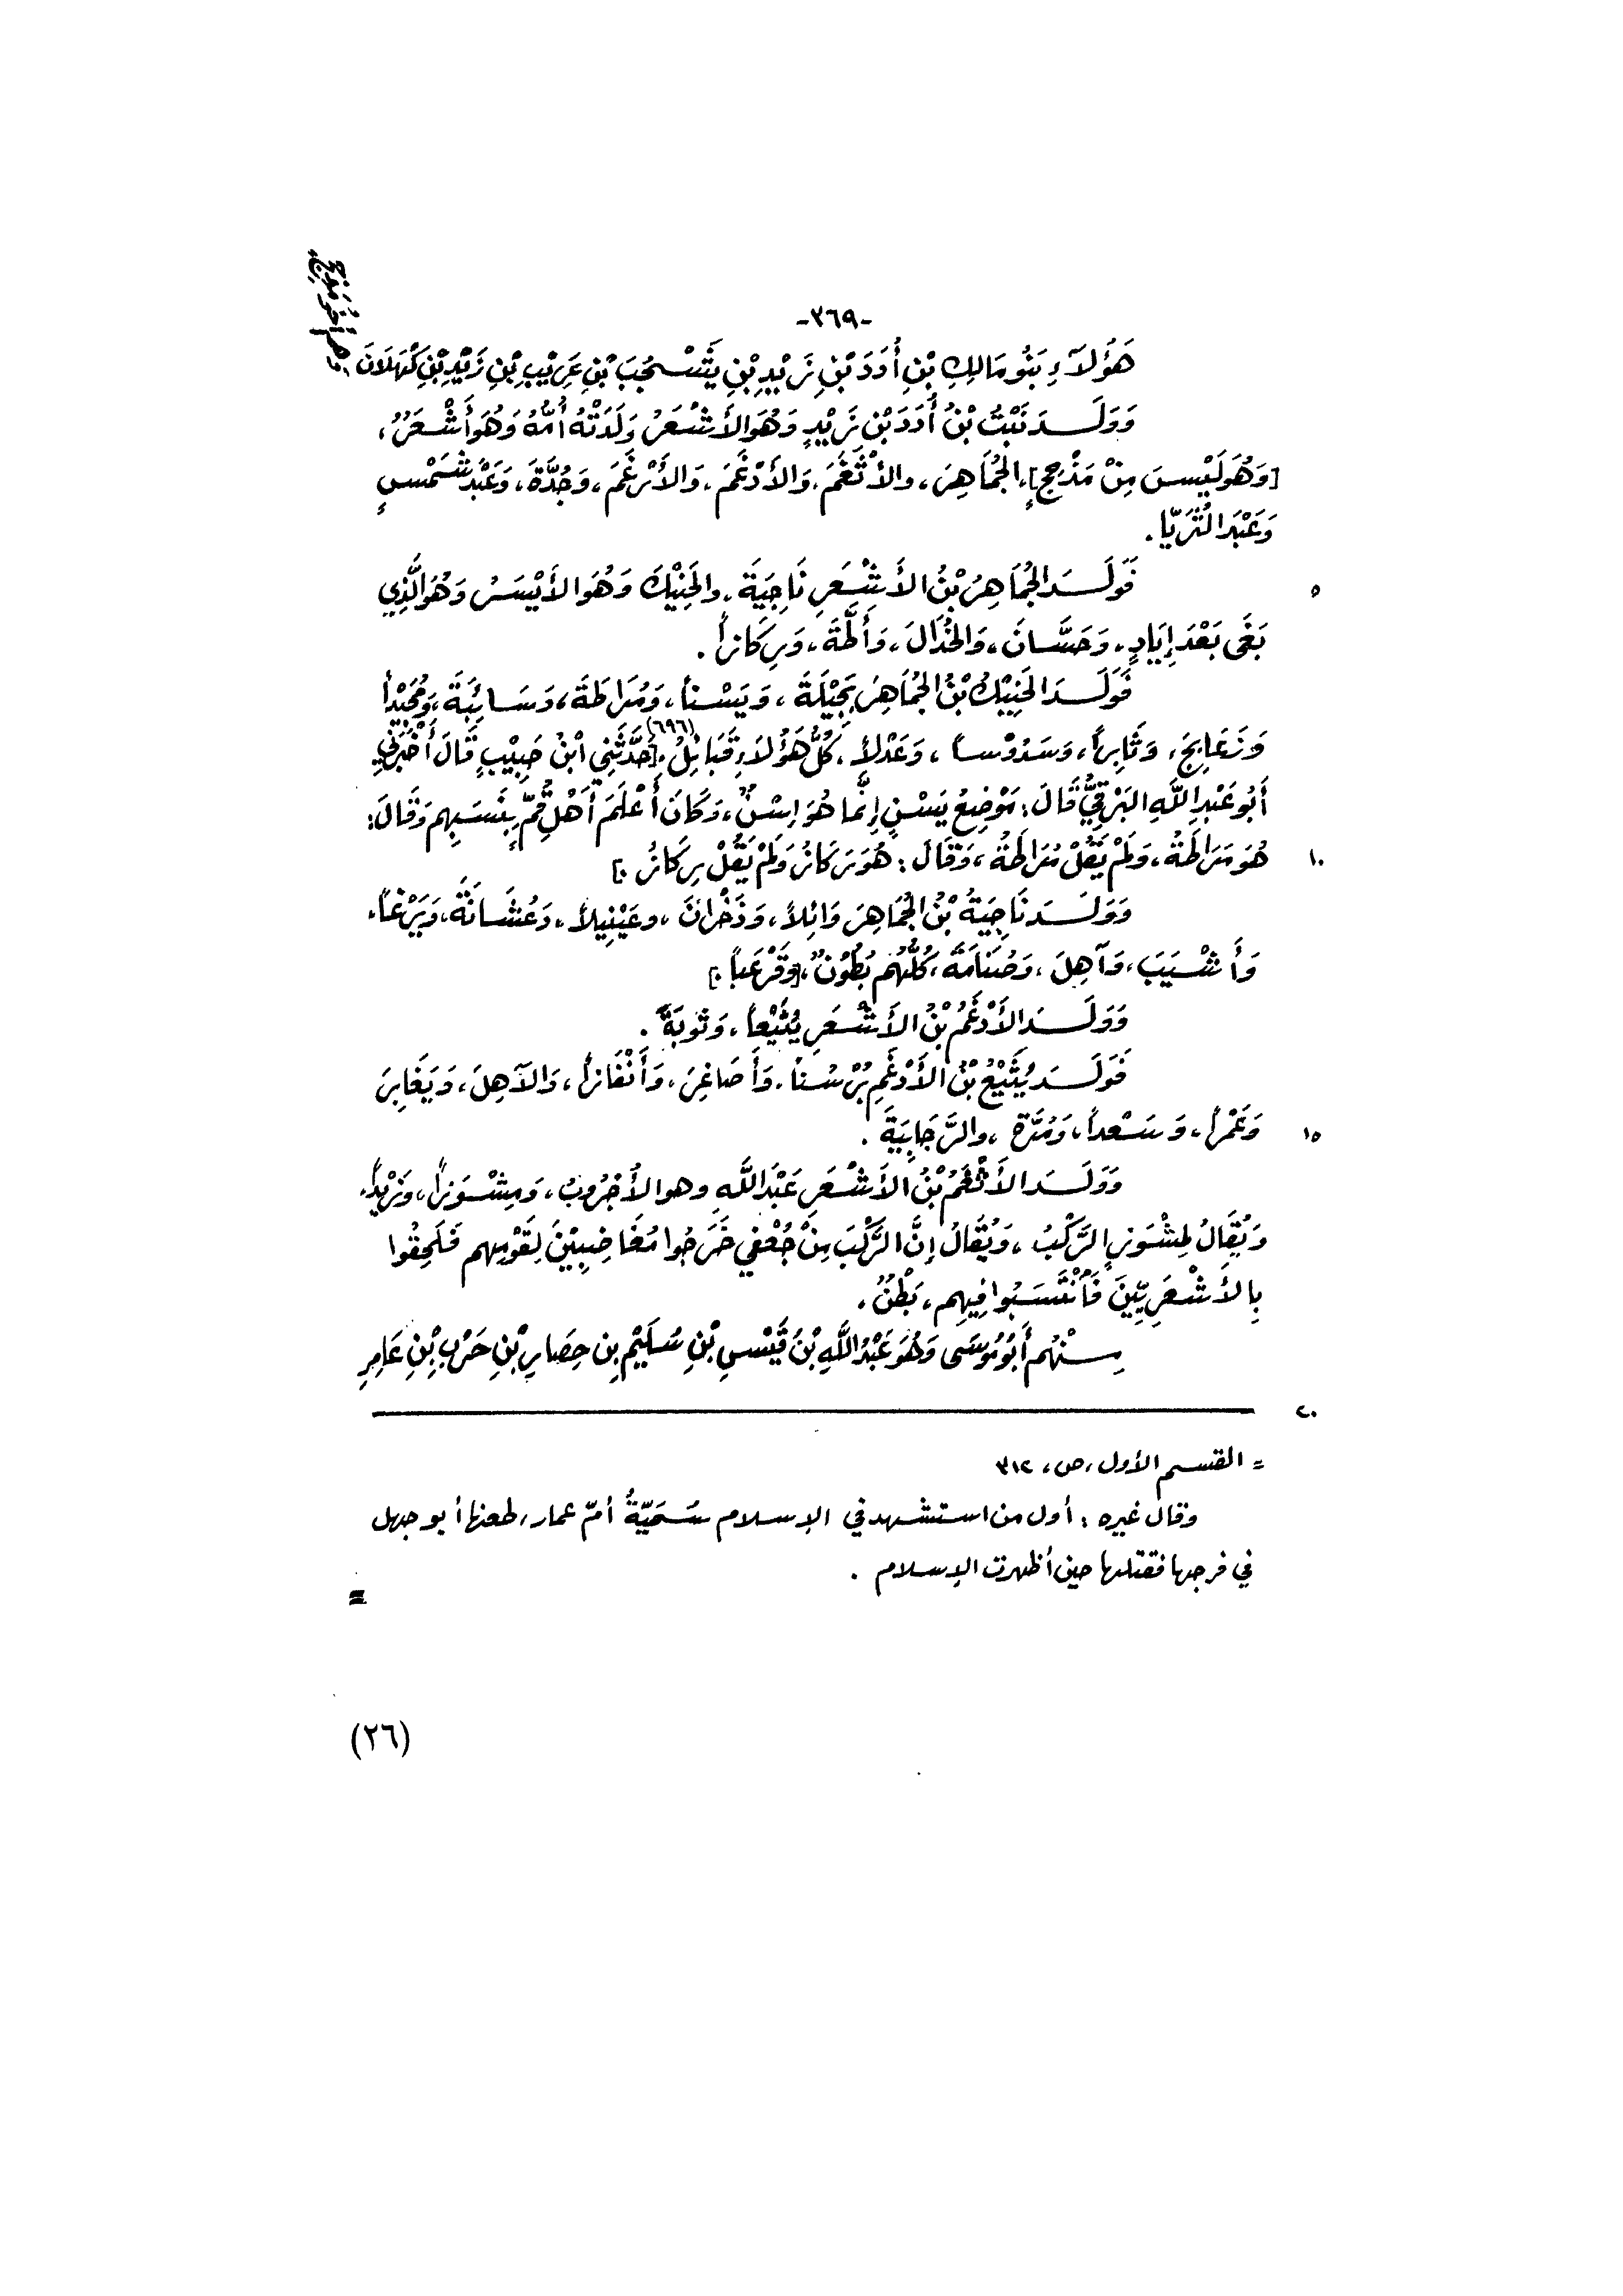 -٣٦٩-
هَؤُلَآءِ بَنُو مَالِكِ بْنِ أُدَدَ بْنِ زَيْدِ بْنِ يَشْجُبَ بْنِ عَرِيْبِ بْنِ زَيْدِ بْنِ كَهْلَانَ
وَوَلَدَ نَبْتُ بْنُ أُدَدَ بْنِ زَيْدٍ وَهُوَ الأَشْعَرُ وَلَدَتْهُ أُمُّهُ وَهُوَ أَشْعَرُ،
[وَهُوَ لَيْسَ مِنْ مَذْحِجٍ]، الجُمَاهِرَ، والأَثْغَمَ، وَالأَدْغَمَ، وَالأَرْغَمَ، وَجُدَّةَ، وَعَبْدَ شَمْسٍ
وَعَبْدَ الثُّرَيَّا.
فَوَلَدَ الجُمَاهِرُ بْنُ الأَشْعَرِ نَاجِيَةَ، والحَنِيْكَ وَهُوَ الأَيْسَرُ وَهُوَ الَّذِي
٥
بَغَى بَعْدَ إِيَادٍ، وَحَسَّانَ، وَالخُذَالَ، وَأَلْمَةَ، وَرِكَازاً.
فَوَلَدَ الحَنِيْكُ بْنُ الجُمَاهِرِ بَجِيْلَةَ، وَيَسْناً، وَمُرَاطَةَ، وَسَائِبَةَ، وَمُجَيْداً
وَزَعَابِجَ، وَثَابِراً، وَسَدُوْساً، وَعَدْلاً، كُلُّ هَؤُلاَءِ قَبَائِلُ، [حَدَّثَنِي(٦٩٦) ابْنُ حَبِيْبٍ قَالَ أَخْبَرَنِي
أَبُو عَبْدِ اللَّهِ البَرْقِيُّ قَالَ: مَوْضِعُ يَسْنٍ إِنَّمَا هُوَ إِسْنٌ، وَكَانَ أَعْلَمَ أَهْلِ قُمٍّ بِنَسَبِهِم وَقَالَ:
هُوَ مَرَاطَةُ، وَلَمْ يَقُلْ مُرَاطَةُ، وَقَالَ: هُوَ رَكَازُ وَلَمْ يَقُلْ رِكَازُ.]
١٠
وَوَلَدَ نَاجِيَةُ بْنُ الجُمَاهِرِ وَائِلاً، وَذَخْرَانَ، وعَيْنِيلاً، وَعُشَانَةَ، وَيَرْعَاً،
وَأَشْيَبَ، وَآهِلَ، وَصُنَامَةَ، كُلُّهُم بُطُوْنٌ، [وَقَرْعَباً.]
وَوَلَدَ الأَدْغَمُ بْنُ الأَشْعَرِ يُثَيْعاً، وَثَوبَةَ.
فَوَلَدَ يُثَيْعُ بْنُ الأَدْغَمِ بُرْسُناً، وَأَصَاغِرَ، وَأَنْفَاراً، وَالآهِلَ، وَيَغَابِرَ
وَعَمْراً، وَسَعْداً، وَمُرَّةَ، والرَّجَابِيَةَ.
١٥
وَوَلَدَ الأَثْغَمُ بْنُ الأَشْعَرِ عَبْدَ اللَّهِ وهو الأُخْرُوبُ، وَمِشْوَراً، وَزَيْداً،
وَيُقَالُ لِمِشْوَرٍ الرَّكْبُ، وَيُقَالُ إِنَّ الرَّكْبَ مِنْ جُعْفِي خَرَجُوا مُغَاضِبِيْنَ لِقَوْمِهِم فَلَحِقُوا
بِالأَشْعَرِيِّيْنَ فَانْتَسَبُوا فِيهِم، بَطْنٌ.
مِنْهُم أَبُو مُوسَى وَهُوَ عَبْدُ اللَّهِ بْنُ قَيْسِ بْنِ سُلَيْمِ بنِ حِصَارِ بْنِ حَرْبِ بْنِ عَامِرِ
٢٠
= القسم الأول، ص، ٣١٢
وقال غيره: أول من استشهد في الإسلام سُمَيّةُ أمّ عمار، طعنها أبو جهل
في فرجها فقتلها حين أظهرت الإسلام.
=
(٢٦)